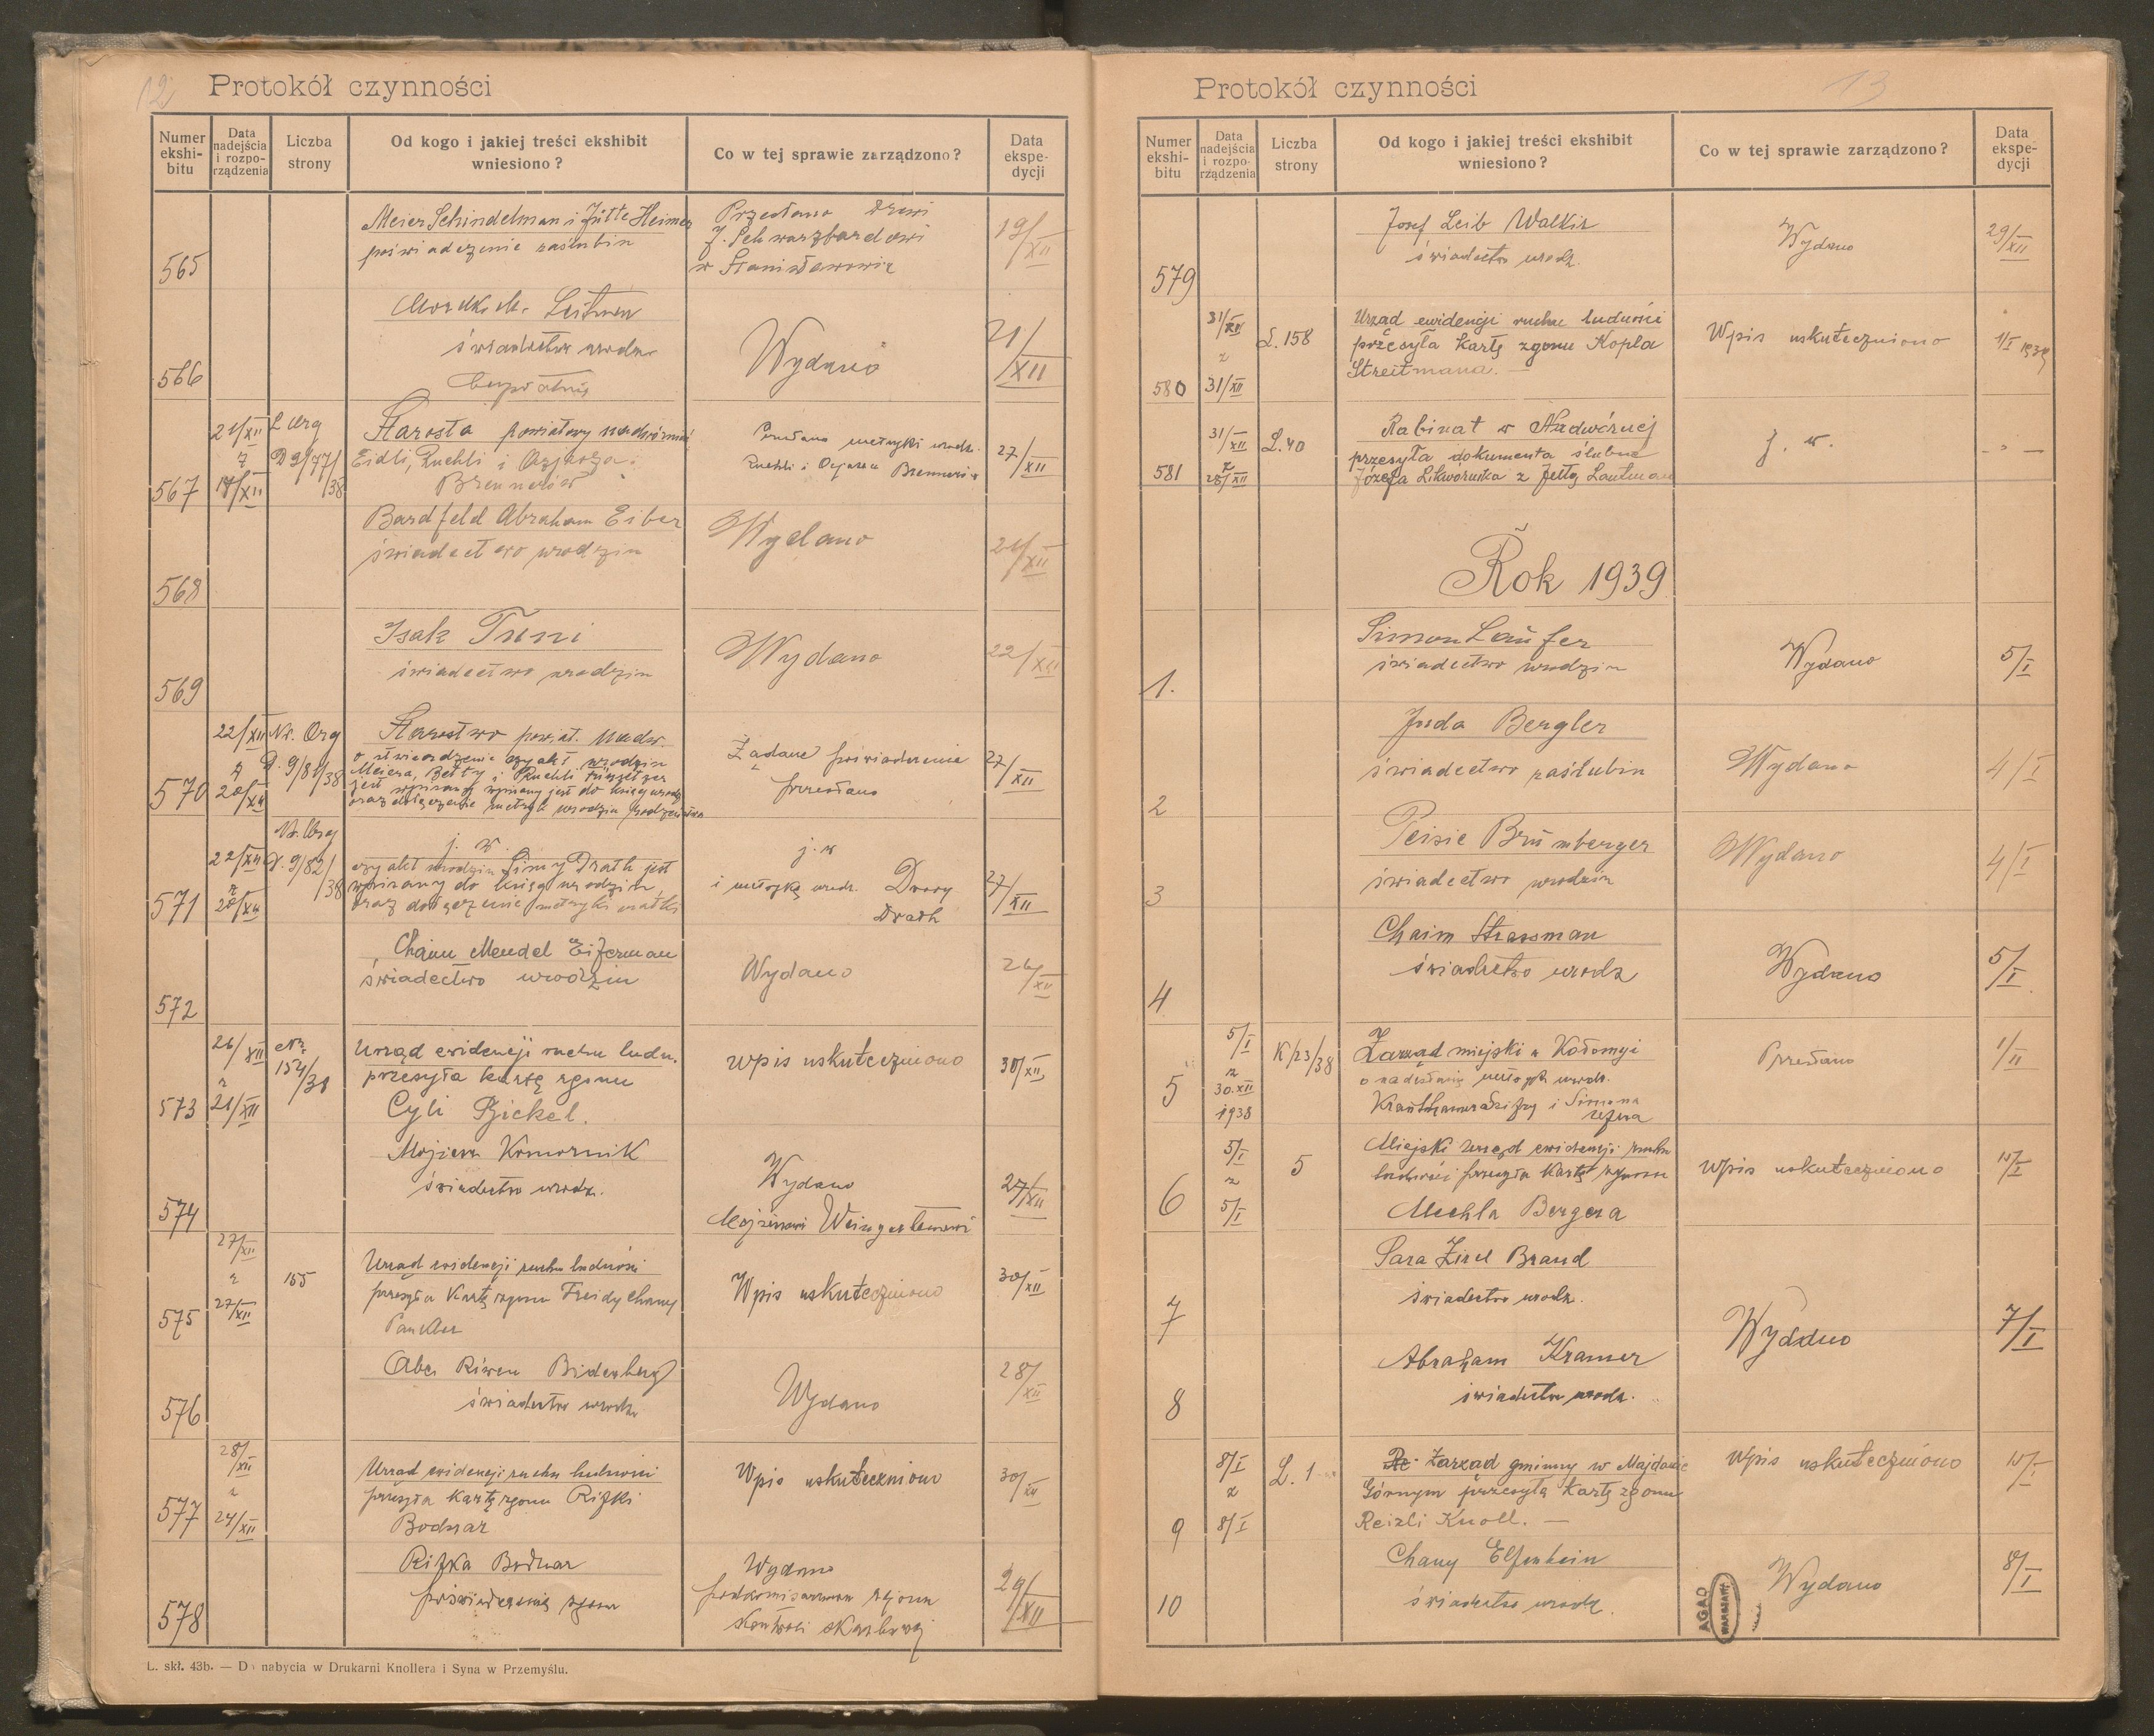 12
Protokół czynności
Numer ekshi- bitu
Data nadejścia i rozpo- rządzenia
Liczba strony
Od kogo i jakiej treści ekshibit wniesiono?
Co w tej sprawie zarządzono?
Data ekspe- dycji
565
Meier Schindelman i Jütte Heimer
poświadczenie zaślubin
Przesłano
J. Schwarzbardowi
w Stanisławowie
19/XII
566
Leitman
świadectwo urodz.
bezpłatnie
Wydano
21/XII
567
21/XII z 17/XII
L Org D 9/77/38
Starosta powiatowy
Ruchli i
Brennerów
Przesłano metryki urodz.
Ruchli i Brennerów
27/XII
568
Bardfeld Abraham Eiber
świadectwo urodzin
Wydano
21/XII
569
Isak
świadectwo urodzin
Wydano
22/XII
570
22/XII z 20/XII
Nr. Org D. 9/81/38
Starostwo powiat. Nadw.
o stwierdzenie czy akt urodzin
Meiera, Betty i Ruchli
jest wpisany do księg urodz.
oraz dołączenie metryk urodzin
Żądane poświadczenie
przesłano
27/XII
571
22/XII z 20/XII
Nr. Org D. 9/82/38
j. w.
czy akt urodzin Simy Drath jest
wpisany do księg urodzin,
oraz dołączenie metryki matki
j. w
i metrykę urodz. Dwory
Drath
27/XII
572
Chaim Mendel Eiferman
świadectwo urodzin
Wydano
26/XII
573
26/XII z 21/XII
Nr. 154/38
Urząd ewidencji ruchu ludn.
przesyła kartę zgonu
Cyli Bickel.
Wpis uskuteczniono
30/XII
574
Mojżesz Komornik
świadectwo urodz.
Wydano
Mojżeszowi Weingartenowi
27/XII
575
27/XII z 27/XII
155
Urząd ewidencji ruchu ludności
przesyła Kartę zgonu Freidy Chany
Wpis uskuteczniono
30/XII
576
Aba Riwen
świadectwo urodz.
Wydano
28/XII
577
28/XII z 24/XII
Urząd ewidencji ruchu ludności
przesyła Kartę zgonu Rifki
Bodnar
Wpis uskuteczniono
30/XII
578
Rifka Bodnar
poświadczenie zgonu
Wydano
podkomisarzowi rejonu
Kontroli skarbowej
29/XII
L. skł. 43b. — Do nabycia w Drukarni Knollera i Syna w Przemyślu.
13
Protokół czynności
Numer ekshi- bitu
Data nadejścia i rozpo- rządzenia
Liczba strony
Od kogo i jakiej treści ekshibit wniesiono?
Co w tej sprawie zarządzono?
Data ekspe- dycji
579
Josef Leib Walkir
świadectwo urodz.
Wydano
29/XII
580
31/XII z 31/XII
L. 158
Urząd ewidencji ruchu ludności
przesyła kartę zgonu Kopla
Streitmana. —
Wpis uskuteczniono
1/I 1939
581
31/XII z 28/XII
L. 40
Rabinat w Nadwórnej
przesyła dokumenta ślubne
Józefa Likwornika z Jettą Lautman
j. w.
- " -
Rok 1939
1.
Simon Laufer
świadectwo urodzin
Wydano
5/I
2
Juda Bergler
świadectwo zaślubin
Wydano
4/I
3
Peisie Brümberger
świadectwo urodzin
Wydano
4/I
4
Chaim Strassman
świadectwo urodz
Wydano
5/I
5
5/I z 30.XII 1938
K/23/38
Zarząd miejski w Kołomyi
o nadesłanie metryk urodz.
i Simona
Przesłano
1/II
6
5/I z 5/I
5
Miejski urząd ewidencji ruchu
ludności przesyła Kartę zgonu
Mechla Bergera
Wpis uskuteczniono
10/I
7
Sara Zirel Brand
świadectwo urodz.
8
Abraham Kramer
świadectwo urodz.
Wydano
7/I
9
8/I z 8/I
L. 1
Zarząd gminny w Majdanie
Górnym przesyła Kartę zgonu
Reizli Knoll. —
Wpis uskuteczniono
10/I
10
Chany Elfenbein
świadectwo urodz.
Wydano
8/I
AGAD
WARSZAWA